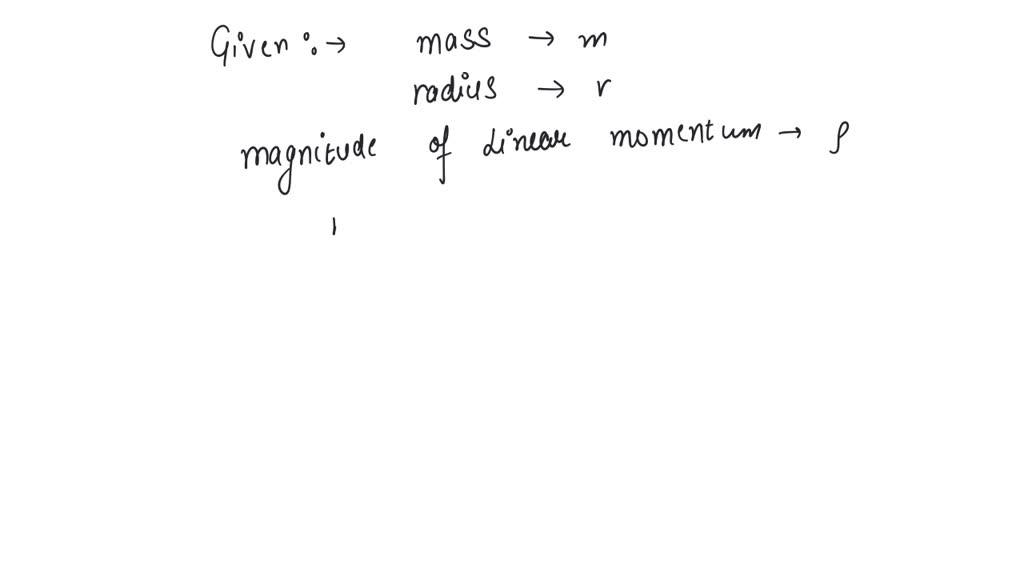 Given :→ mass → m
radius → r
magnitude of linear momentum → p